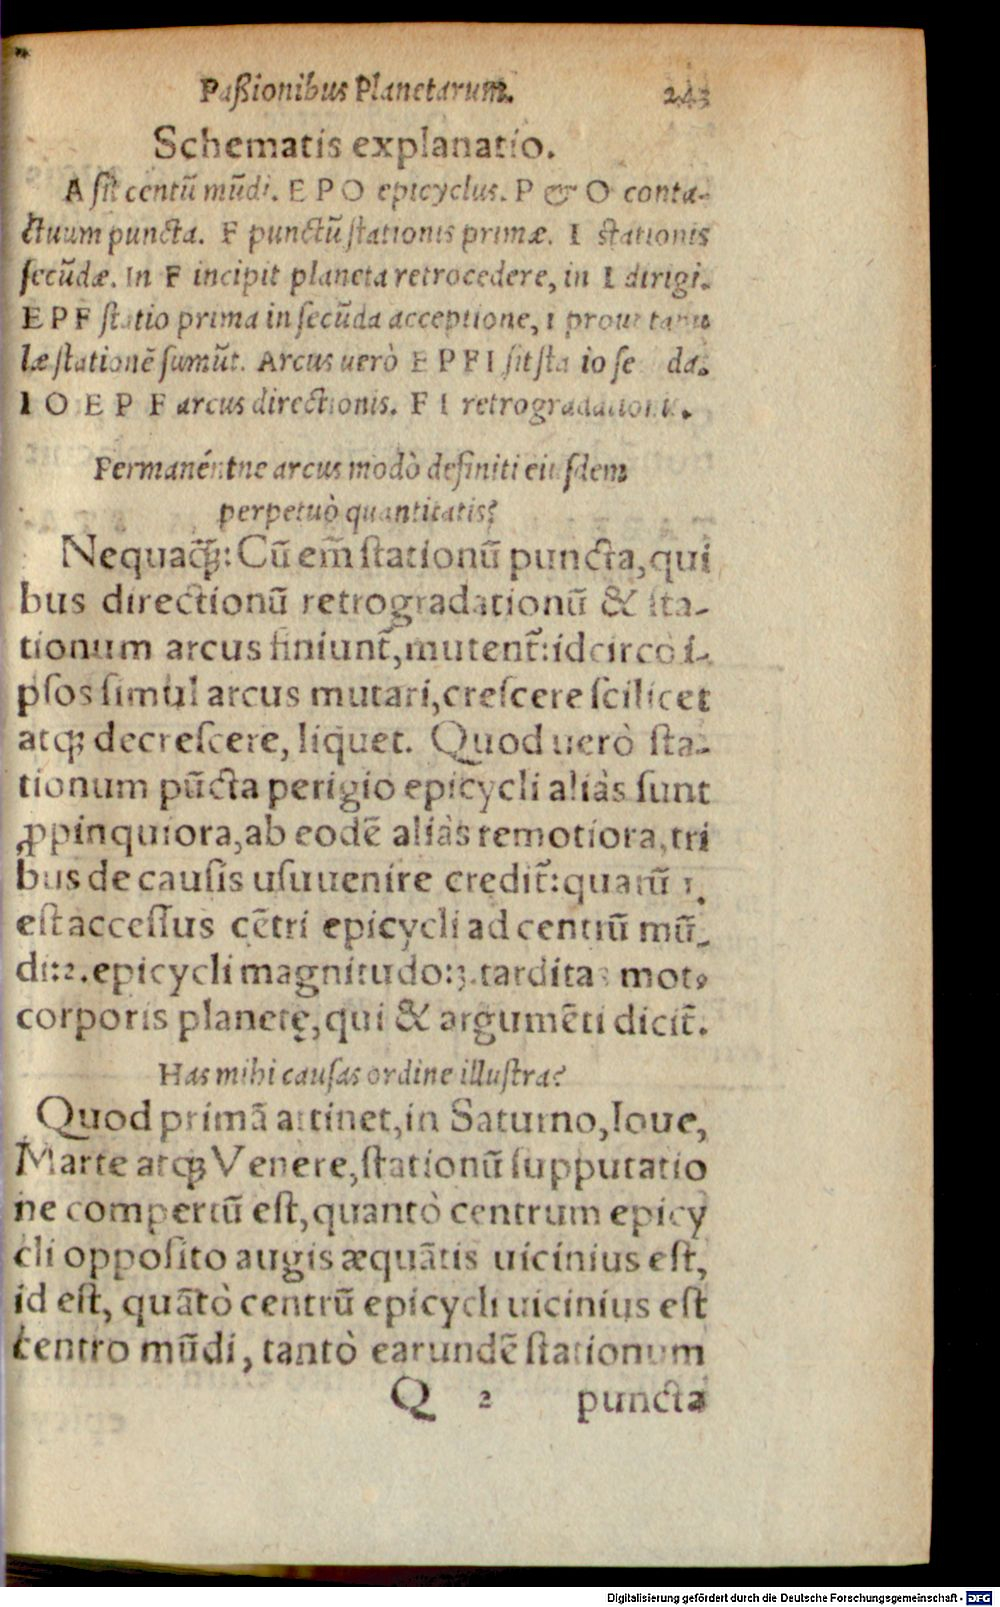 Paßionibus Planetarum. 243
Schematis explanatio.
A sit centū mūdi. E P O epicyclus. P & O conta-
ctuum puncta. F punctū stationis primæ. I stationis
secūdæ. In F incipit planeta retrocedere, in I dirigi.
E P F statio prima in secūda acceptione, i prout tabu
læ stationē sumūt. Arcus uerò E P F I sit
I O E P F arcus directionis. F I retrogradationis.
Permanéntne arcus modò definiti eiusdem
perpetuò quantitatis?
Nequaꝗ̃: Cū em̃ stationū puncta, qui
bus directionū retrogradationū & sta-
tionum arcus finiunt̃, mutent̃: idcirco i-
psos simul arcus mutari, crescere scilicet
atqꝫ decrescere, liquet. Quod uerò sta-
tionum pūcta perigio epicycli aliàs sunt
ꝓpinquiora, ab eodē aliàs remotiora, tri
bus de causis usuuenire credit̃: quarū 1.
est accessus cētri epicycli ad centrū mū-
di: 2. epicycli magnitudo: 3. tarditas motꝰ
corporis planetę, qui & argumēti dicit̃.
Has mihi causas ordine illustra?
Quod primā attinet, in Saturno, Ioue,
Marte atqꝫ Venere, stationū supputatio
ne compertū est, quantò centrum epicy
cli opposito augis æquātis uicinius est,
id est, quātò centrū epicycli uicinius est
centro mūdi, tantò earundē stationum
Q 2 puncta
Digitalisierung gefördert durch die Deutsche Forschungsgemeinschaft - DFG